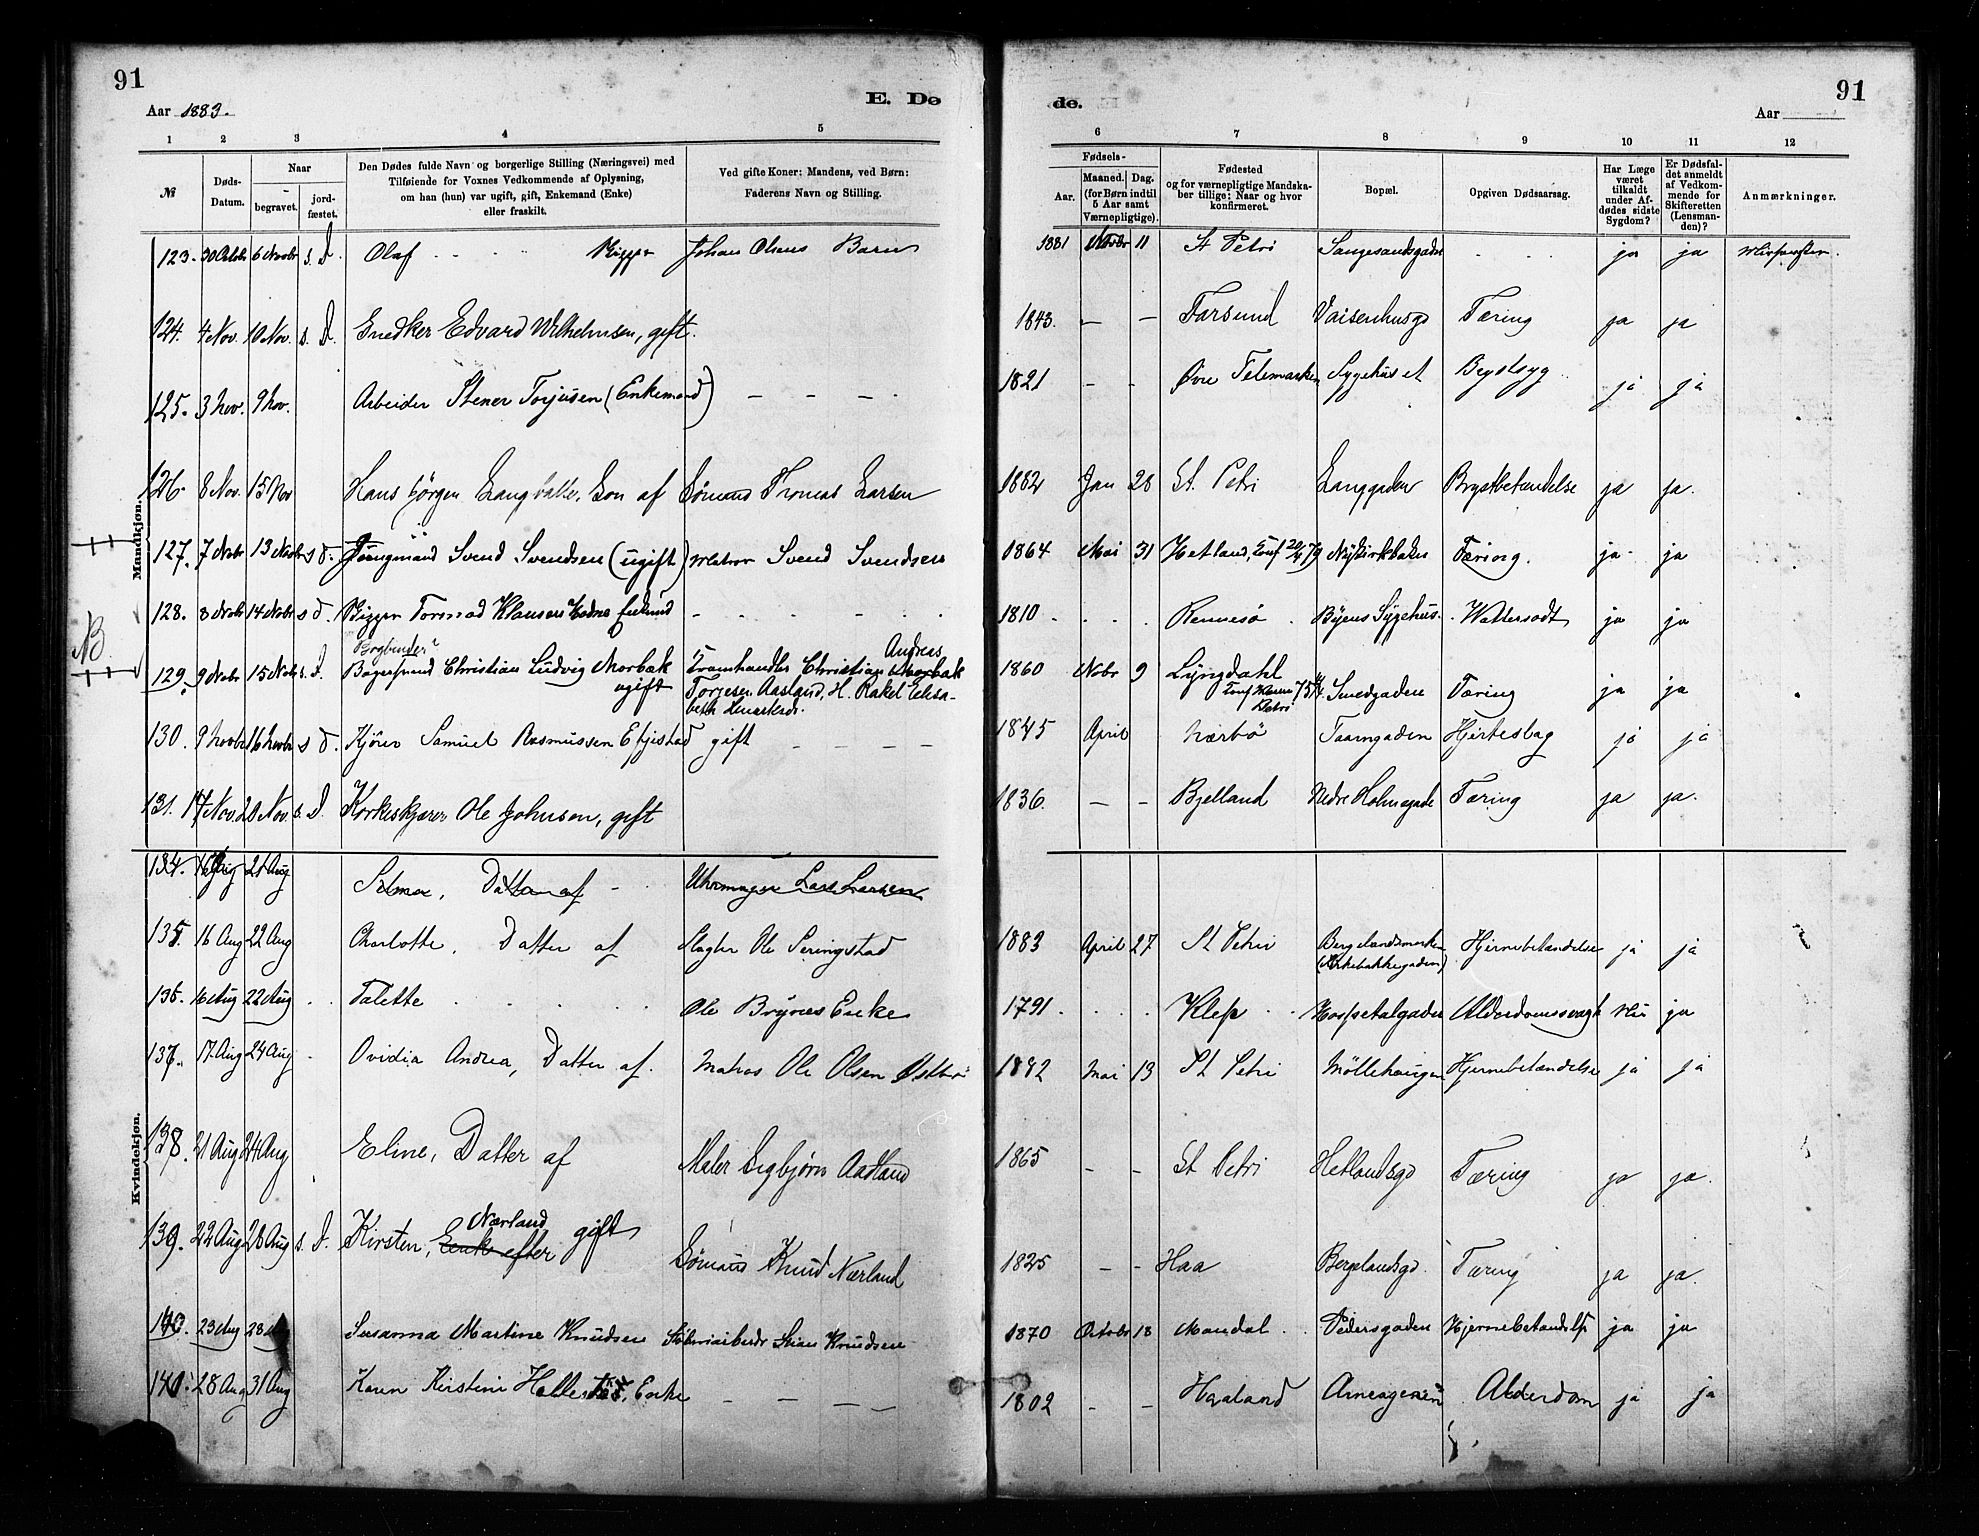 91
Aar 1883.
E. Dø
de.
91
Aar
1 2 3 4 5 6 7 8 9 10 11 12
№
Døds-Datum.
Naar
begravet.
jord-fæstet.
Den Dødes fulde Navn og borgerlige Stilling (Næringsvei) med
Tilføiende for Voxnes Vedkommende af Oplysning,
om han (hun) var ugift, gift, Enkemand (Enke)
eller fraskilt.
Ved gifte Koner: Mandens, ved Børn:
Faderens Navn og Stilling.
Fødsels-
Aar.
Maaned. Dag.
(for Børn indtil
5 Aar samt
Værnepligtige).
Fødested
og for værnepligtige Mandska-
ber tillige: Naar og hvor
konfirmeret.
Bopæl.
Opgiven Dødsaarsag.
Har Læge
været
tilkaldt
under Af-
dødes sidste
Sygdom?
Er Dødsfal-
det anmeldt
af Vedkom-
mende for
Skifteretten
(Lensman-
den)?
Anmærkninger.
Mandkjøn.
123. 30 Octbr 6 Novbr s. d. Olaf Rigger Johan Olsens Barn 1881 Novbr 11 St Petri ja ja
124. 4 Nov. 10 Nov. s. d. Snedker Edvard Wilhelmsen, gift. 1843. — — Farsund Vaisenhusgd Tæring ja ja
125. 3 Nov. 9 Nov. Arbeider Stener Torjusen (Enkemand) — — — 1821 - - Øvre Telemarken Sygehuset Brystsyg ja ja
126. 8 Nov. 15 Nov Hans Jørgen Langballe, Søn af Sømand Thomas Larsen 1882 Jan 28 St. Petri Langgaden Brystbetændelse ja ja.
127. 7 Novbr 13 Novbr s d. Ÿoungmand Svend Svendsen (ugift) Matros Svend Svendsen 1864 Mai 31 Hetland, Conf 20/4 79 Nykirkbakn Tæring. ja ja
128. 8 Novbr 14 Novbr s d. Rigger Tormod Klausen Enkmd 1810 Rennesø Byens Sygehus. Wattersodt ja ja
NB.
Bogbinder
129. 9 Novbr 15 Novbr s. d. Christian Ludvig Morbak Christian Morbak 1860 Novbr 9 Lyngdahl Smedgaden Tæring ja ja
ugift
Andreas
Torjesen Aasland, H. Rakel Elisa-
beth
130. 9 Novbr 16 Novbr s d. Kjører Samuel Rasmussen gift — — — 1845 April Nærbö Taarngaden Hjerteslag ja ja
131. 17 Nov. 20 Nov. s. d. Korkeskjærer Ole Johnsen, gift 1836. — — Bjelland Nedre Holmegade Tæring ja ja.
Kvindekjøn.
134. 16 Aug 21 Aug Selma, Datter af Uhrmager Lars Larsen
135. 16 Aug 22 Aug Charlotte, Datter af Slagter Ole Seringstad 1883 April 27 St Petri Bergelandsmarken Hjernebetændelse ja ja
(Kirkebakkegaden)
136. 16 Aug 22 Aug Talette Ole Brynes Enke 1791 Klep Hospetalgaden Alderdomssvagh Nei ja
137. 17 Aug 24 Aug Ovidia Andrea, Datter af. Matros Ole Olsen 1882 Mai 13 St Petri Möllehaugen Hjernebetændelse ja ja
138. 21 Aug 24 Aug Eline, Datter af Maler Sigbjørn Aadland 1865 — — St Petri Hetlandsgd Tæring ja ja.
139. 22 Aug 28 Aug s. d. Kirsten, Enke efter Nærland gift Sømand Knud Nærland 1825 — — Haa Bergelandsgd. Tæring ja ja.
140. 23 Aug 28 Aug Susanna Martine Knudsen Knudsen 1870 Octobr 18 Mandal Pedersgaden Hjernebetændelse ja ja
141. 28 Aug 31 Aug Karen Kirstine Enke — — — 1802 - - Haaland Alderdom ja ja